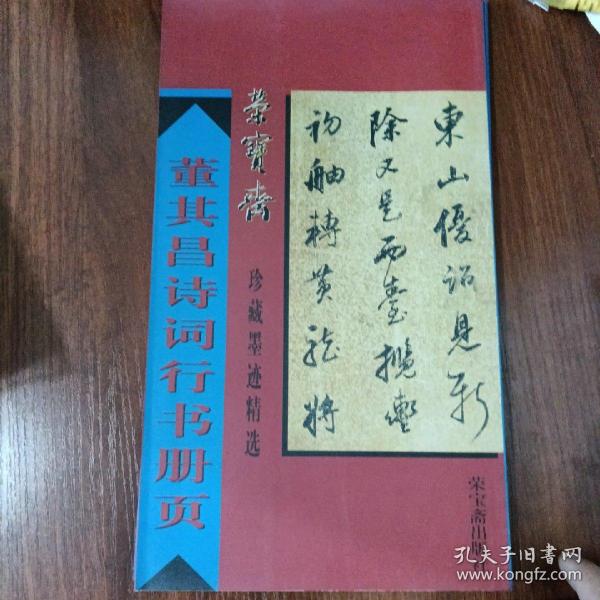 荣宝斋
珍藏墨迹精选
董其昌诗词行书册页
東山優詔見新
除又是西臺攬轡
初舳轉黄龍將
荣宝斋出版
孔夫子旧书网
www.kongfz.com